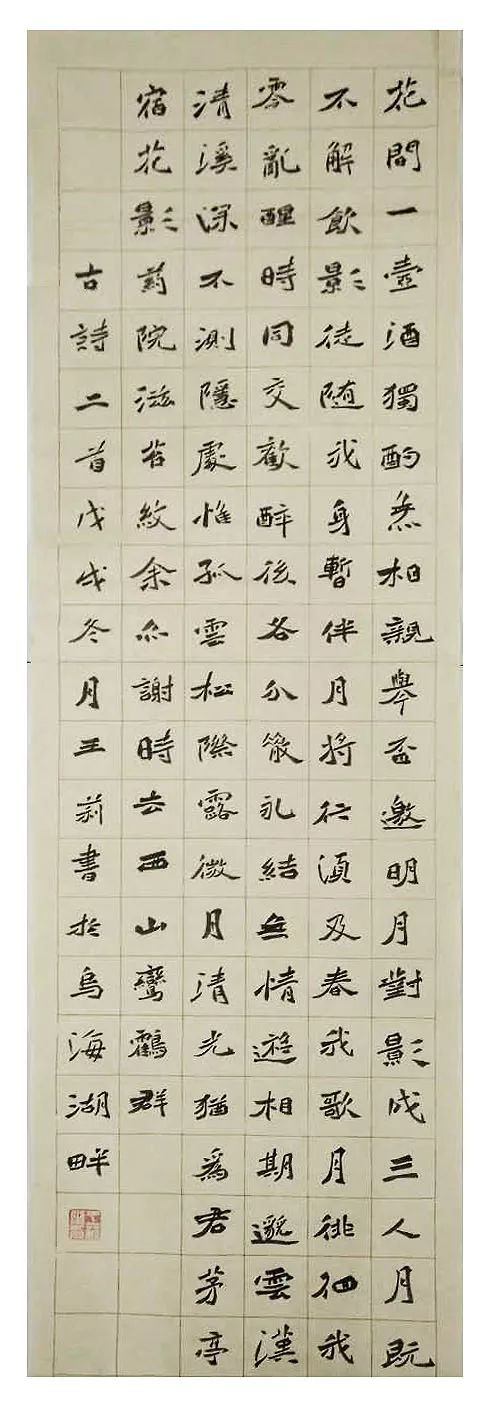 花間一壺酒獨酌無相親舉盃邀明月對影成三人月既
不解飲影徒随我身暫伴月将行須及春我歌月徘徊我
零亂醒時同交歡醉後各分散永結無情遊相期邈雲漢
清溪深不測隱處惟孤雲松際露微月清光猶爲君茅亭
宿花影葯院滋苔紋余亦謝時去西山鸞鶴群
古詩二首戊戌冬月王莉書於烏海湖畔